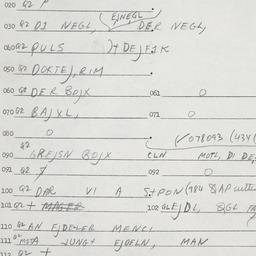 020 G2 P
EJNEGL
030 G2 DI NEGL, DER NEGL,
040 G2 PULS )+ DEJFIK
050 G2 DOKTEJ, RIM
060 G2 DER BOJX 061 O
070 G2 BAJXL, 071 O
080 O 078093 (434(
090 G2 GREJSN BOJX CLN MOTL, DI DE
091 G2 092 O
100 G2 DAR VI A S+PON (984
101 G2 + MAGER 102 G2 EJDL, &GL
110 G2 AN EJDELER MENC(
111 G2 MITA JUNG+ EJDELN, MAN
112 G2 +